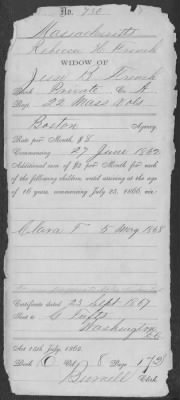 No. 730
Massachusetts
Rebecca H. French
WIDOW OF
Jesse B. French
Rank Private Co. A
Regt. 22 Mass Vols
Boston Agency.
Rate per Month, $8
Commencing 27 June 1862
Additional sum of $2 per Month for each
of the following children, until arriving at the age
of 16 years, commencing July 25, 1866, viz:
Clara F 5 1868
Certificate dated 23 Sept 1867
Sent to C
Washington
Act 14th July, 1862.
Book Vol 8 Page 172
Clerk.